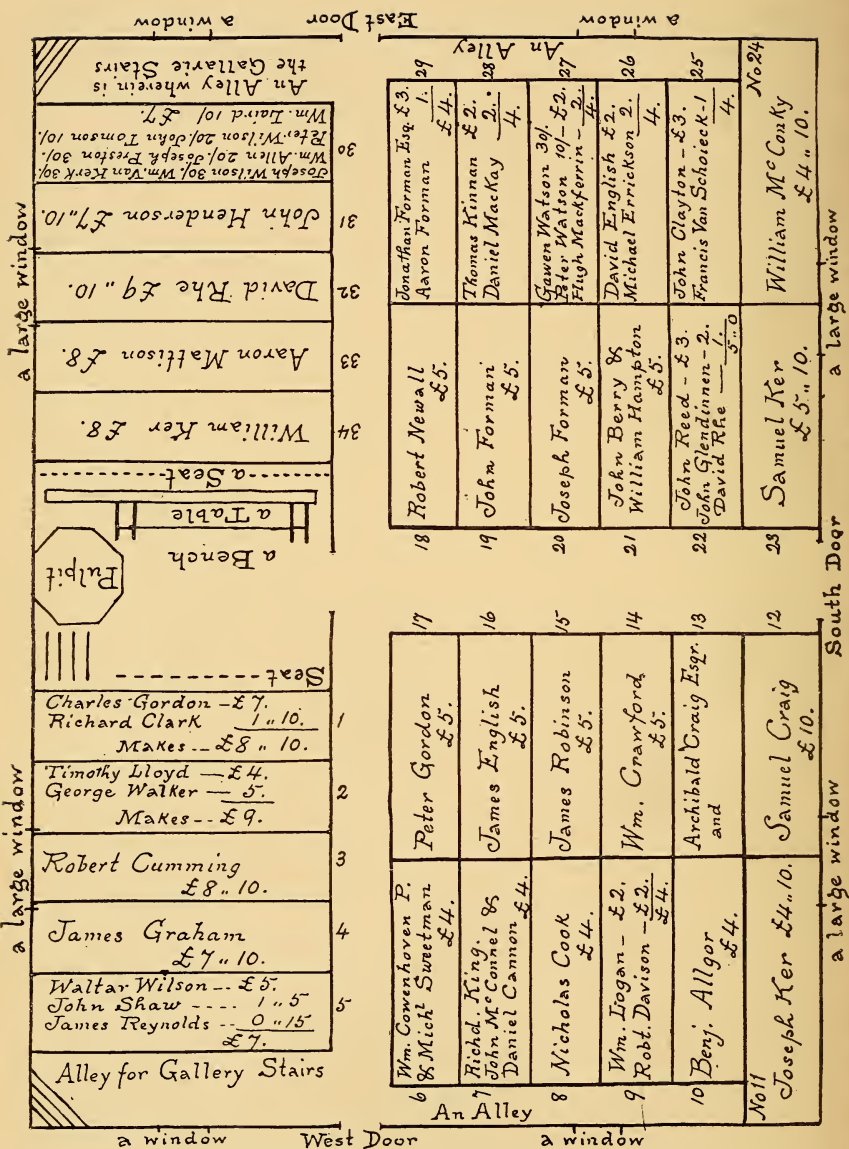 a window
East Door
a window
An Alley wherein is
the Gallarie Stairs
Joseph Wilson 30/ Wm. Van Kerk 30/
Wm. Allen 20/ Joseph Preston 30/.
Peter Wilson 20/ John Tomson 10/.
Wm. Laird 10/ £7.
30
John Henderson £7,,10.
31
David Rhe £9,,10.
32
Aaron Mattison £8.
33
William Ker £8.
34
a large window
a Seat
a Table
a Bench
Pulpit
Seat
Charles Gordon - £7.
Richard Clark 1,,10.
Makes -- £8,,10.
1
Timothy Lloyd — £4.
George Walker — 5.
Makes -- £9.
2
Robert Cumming
£8,,10.
3
James Graham
£7,,10.
4
Waltar Wilson -- £5.
John Shaw ---- 1,,5
James Reynolds -- 0,,15
£7.
5
Alley for Gallery Stairs
a large window
An Alley
29
Jonathan Forman Esq. £3.
Aaron Forman 1.
£4.
28
Thomas Kinnan £2.
Daniel MacKay 2.
4.
27
Gawen Watson 30/.
Peter Watson 10/- £2.
Hugh Mackferrin - 2.
4.
26
David English £2.
Michael Errickson 2.
4.
25
John Clayton - £3.
Francis Van Schoieck - 1
4.
No 24
William McConky
£4,,10.
Robert Newall
£5.
18
John Forman
£5.
19
Joseph Forman
£5.
20
John Berry &
William Hampton
£5.
21
John Reed - £3.
John Glendinnen - 2.
David Rhe — 1.
5,,0
22
Samuel Ker
£5,,10.
23
a large window
South Door
17
Peter Gordon
£5.
16
James English
£5.
15
James Robinson
£5.
14
Wm. Crawford
£5.
13
Archibald Craig Esqr.
and
12
Samuel Craig
£10.
Wm. Cowenhoven P.
& Michl Sweetman
£4.
6
Richd. King.
John McConnel &
Daniel Cannon £4.
7
Nicholas Cook
£4.
8
Wm. Logan - £2.
Robt. Davison - £2.
£4.
9
Benj. Allgor
£4.
10
No 11
Joseph Ker £4,,10.
a large window
An Alley
a window
West Door
a window